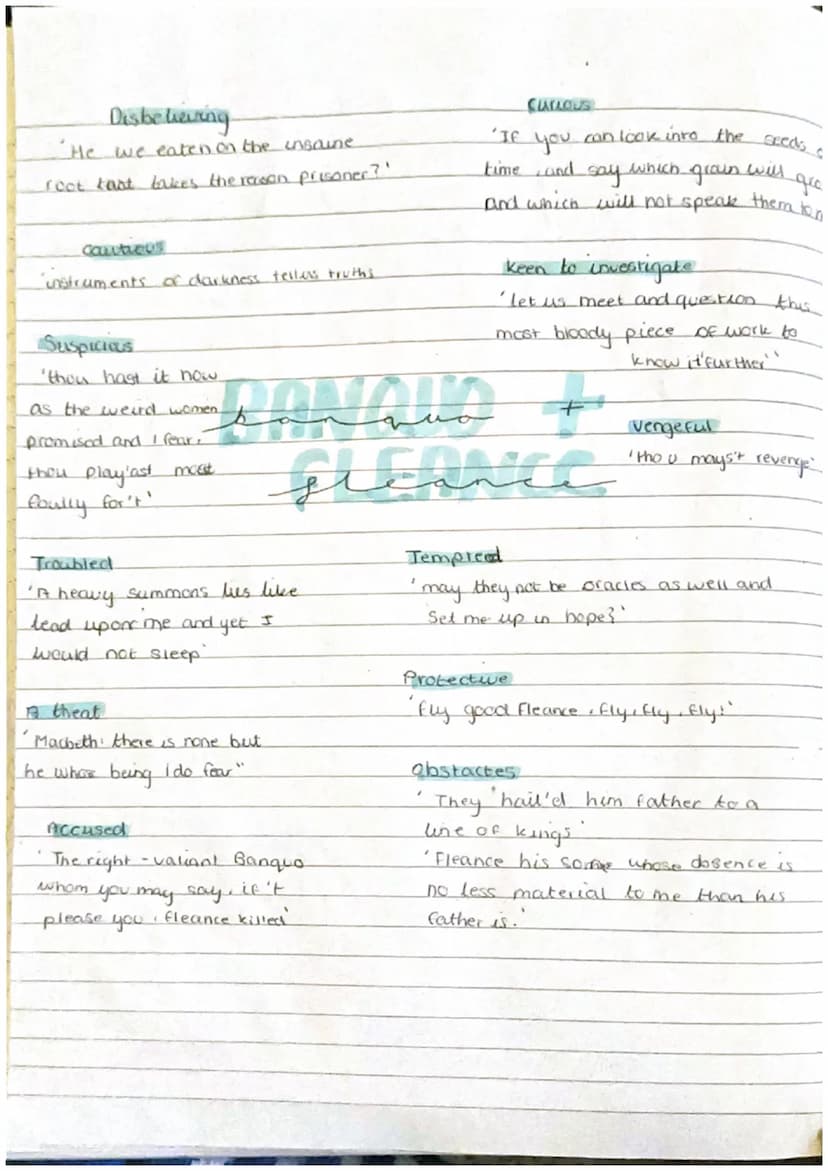 Disbelieving
'He we eaten on the insane
root that takes the reason prisoner?'
Cautious
'instruments of darkness tell us truths
Suspicious
'thou hast it now
as the weird women
promised and I fear,
thou play'ast most
foully for't'
Troubled
'A heavy summons lies like
lead upon me and yet I
would not sleep'
A theat
'Macbeth: there is none but
he whos being I do fear"
Accused
'The right-valiant Banquo
whom you may say, if't
please you, fleance killed'
BANQUO +
banquo +
FLEANCE
fleance
Curious
'If you can look into the seeds
time, and say which grain will
and which will not speak them
keen to investigate
'let us meet and question this
most bloody piece of work to
know it further''
Vengeful
'thou mays't revenge'
Tempted
'may they not be oracles as well and
Set me up in hope?'
Protective
'fly good Fleance, fly, fly, fly!'
Obstacles
'They 'hail'd him father to a
line of kings'
'Fleance his whose absence is
no less material to me than his
father is.'